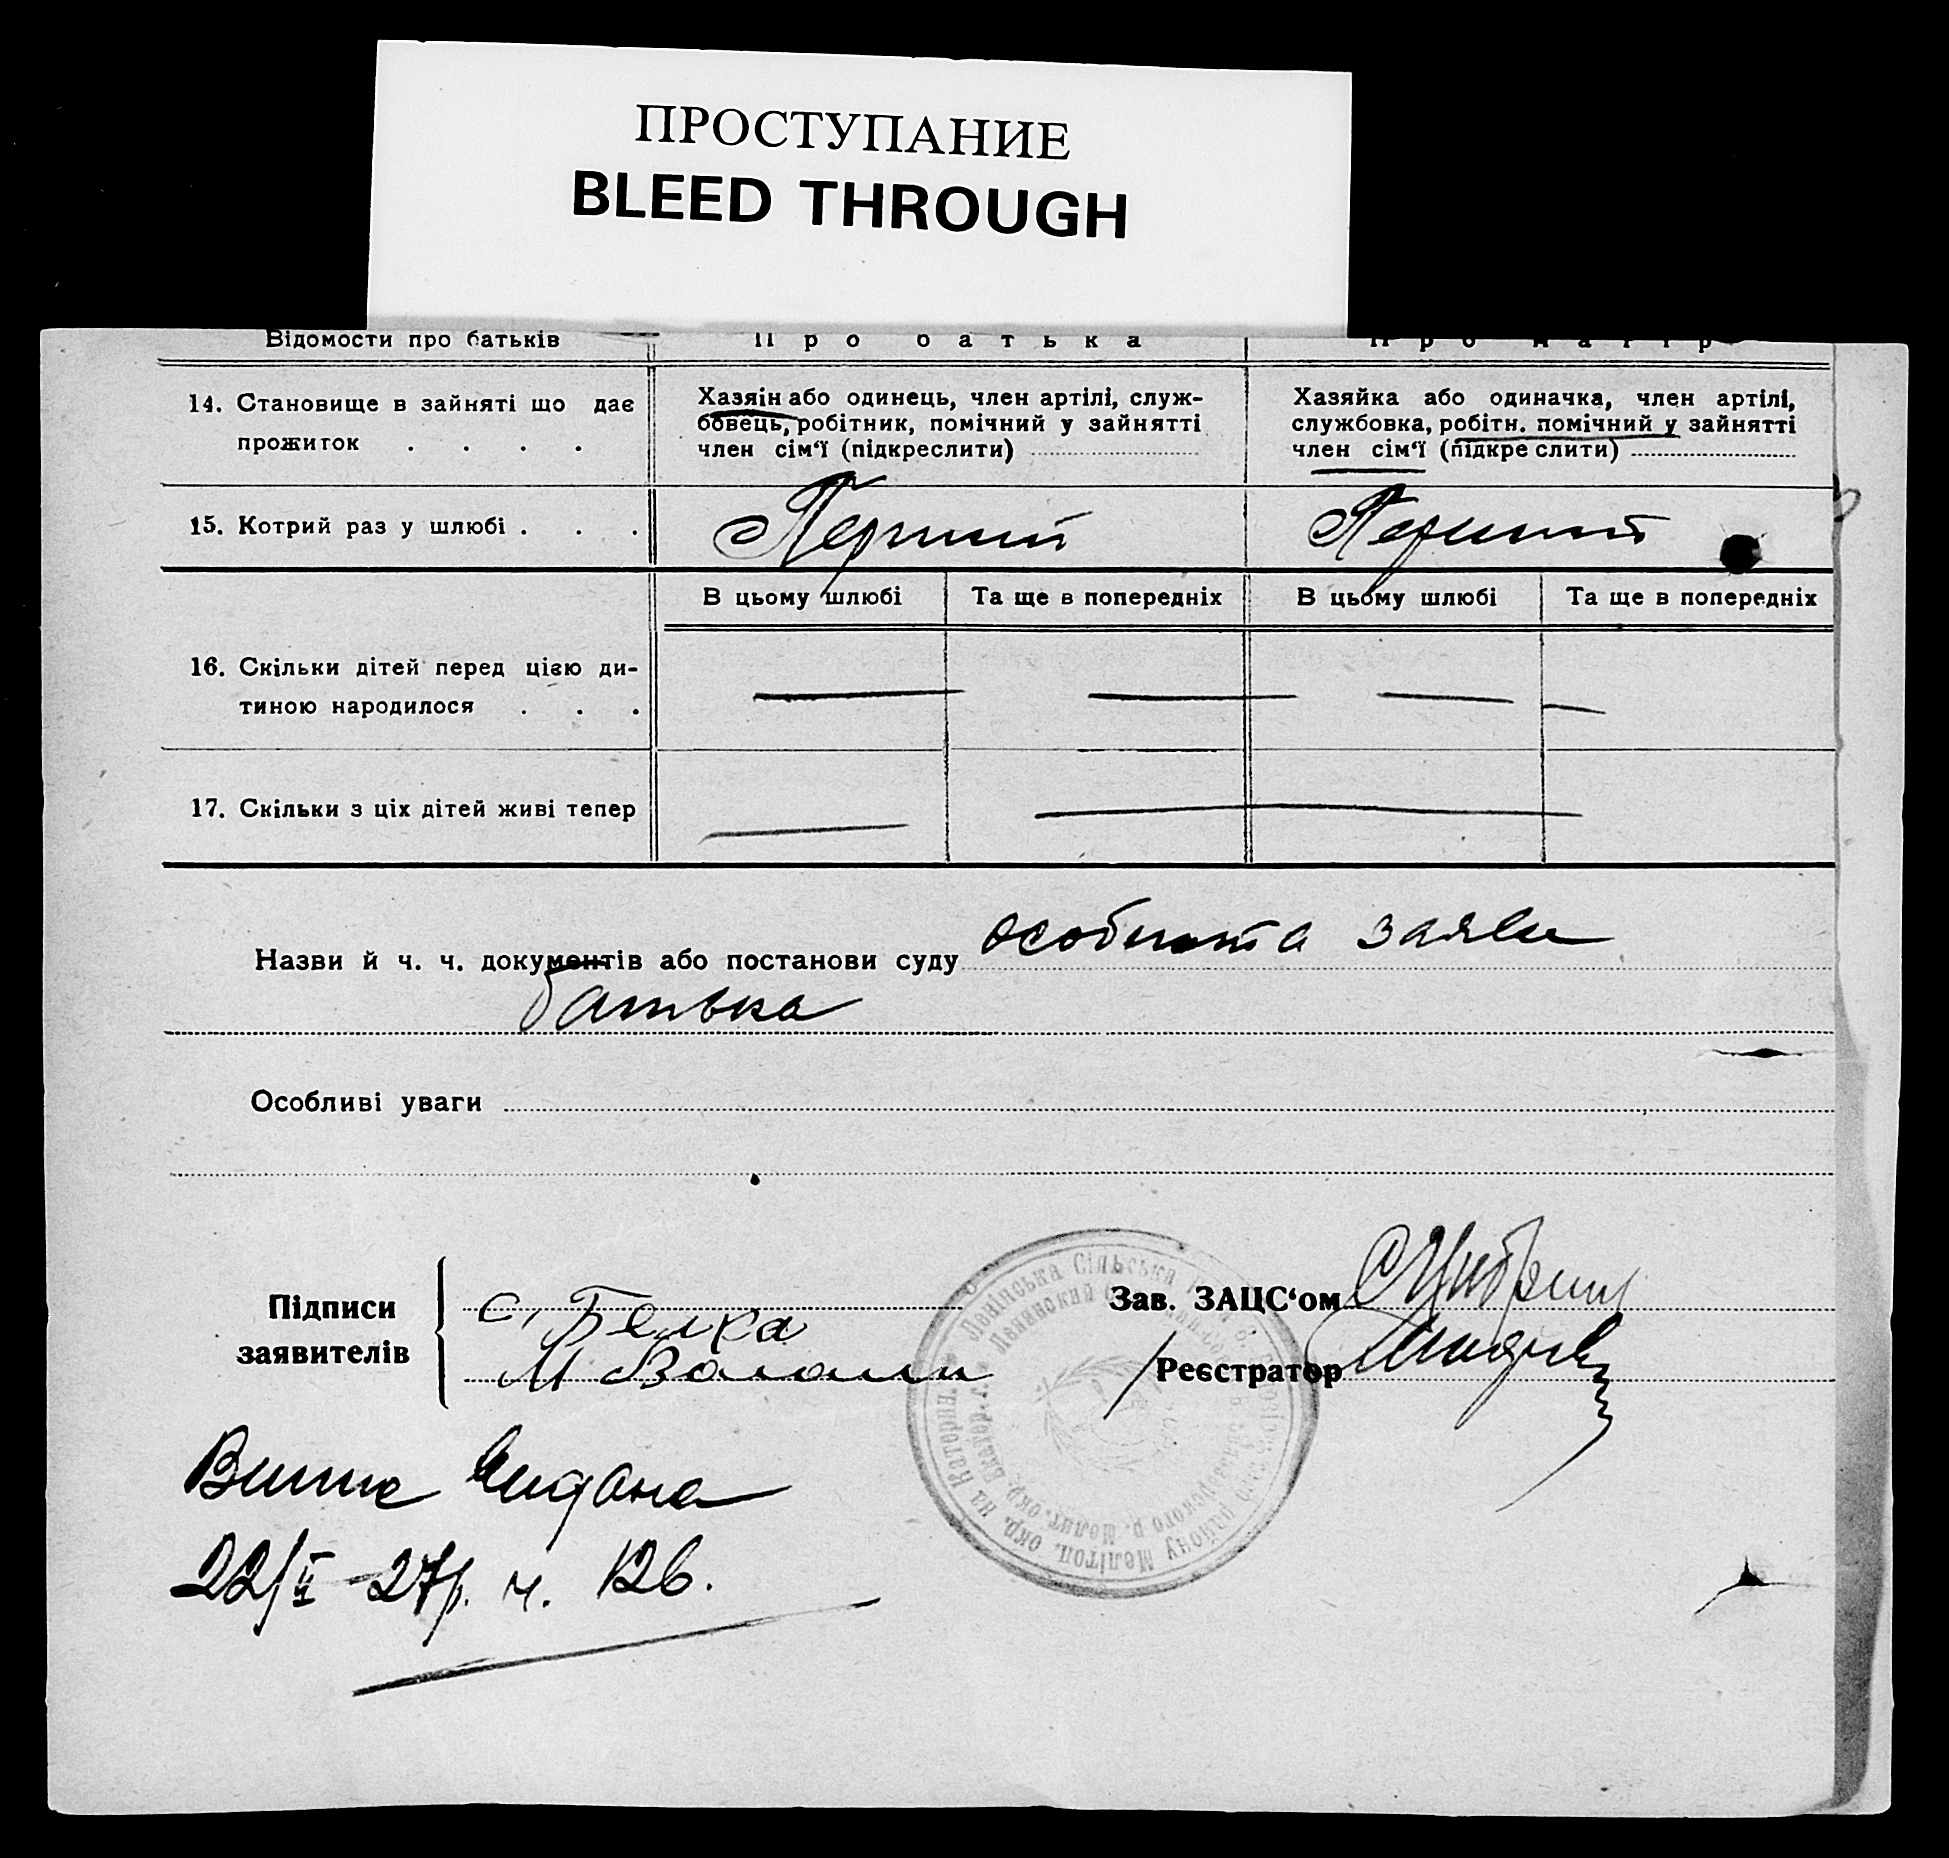 ПРОСТУПАНИЕ
BLEED THROUGH
Відомости про батьків Про батька Про матір
14. Становище в зайняті що дає прожиток . . . .
Хазяін або одинець, член артілі, служ-
бовець, робітник, помічний у зайнятті
член сім‘ї (підкреслити)
Хазяйка або одиначка, член артілі,
службовка, робітн. помічний у зайнятті
член сім‘ї (підкреслити)
15. Котрий раз у шлюбі . . . Перший Перший
В цьому шлюбі Та ще в попередніх В цьому шлюбі Та ще в попередніх
16. Скільки дітей перед цією ди-
тиною народилося . . .
17. Скільки з ціх дітей живі тепер
Назви й ч. ч. документів або постанови суду особиста заява
батька
Особливі уваги
Підписи
заявителів
С, Белха
М
Зав. ЗАЦС‘ом
Реєстратор
Ленінська Сільська
району Мелітоп. окр. на Катерин.
Випис видана
22/V 27р. ч. 126.